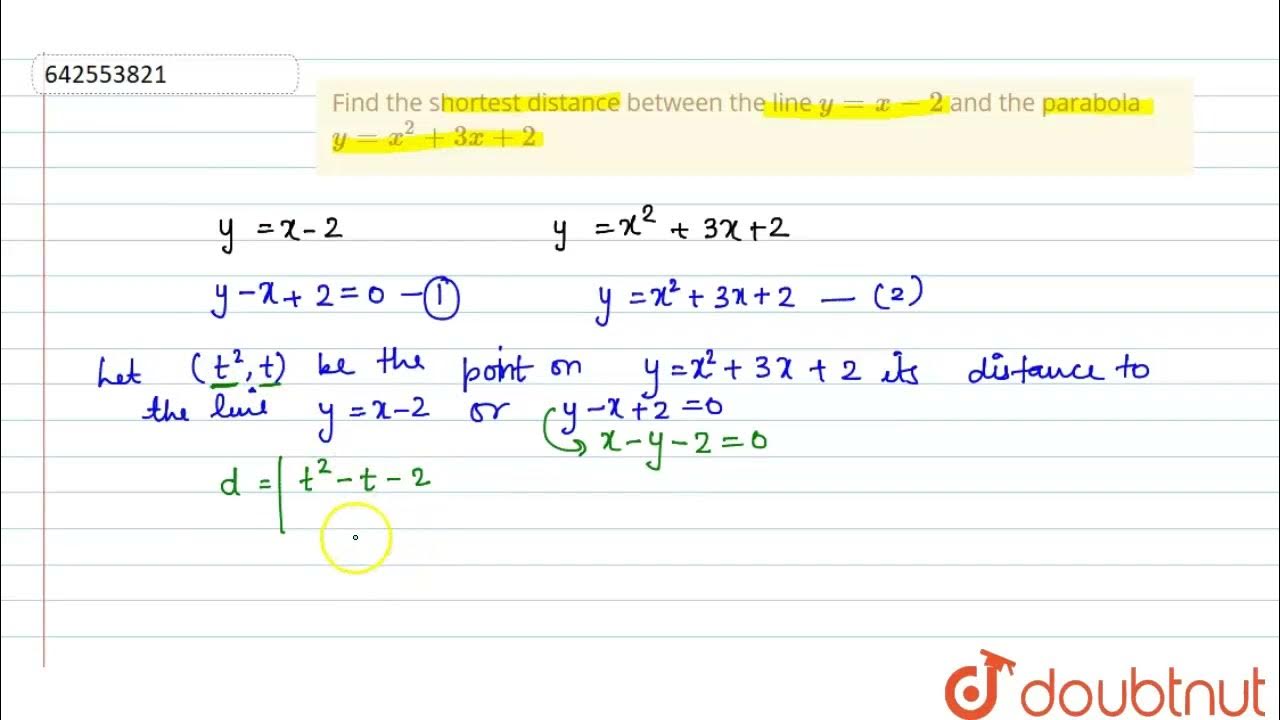 642553821
Find the shortest distance between the line y = x − 2 and the parabola
y = x² + 3x + 2
y = x - 2 y = x² + 3x + 2
y - x + 2 = 0 - ① y = x² + 3x + 2 — (2)
Let (t², t) be the point on y = x² + 3x + 2 its distance to
the line y = x - 2 or y - x + 2 = 0
x - y - 2 = 0
d = | t² - t - 2
doubtnut